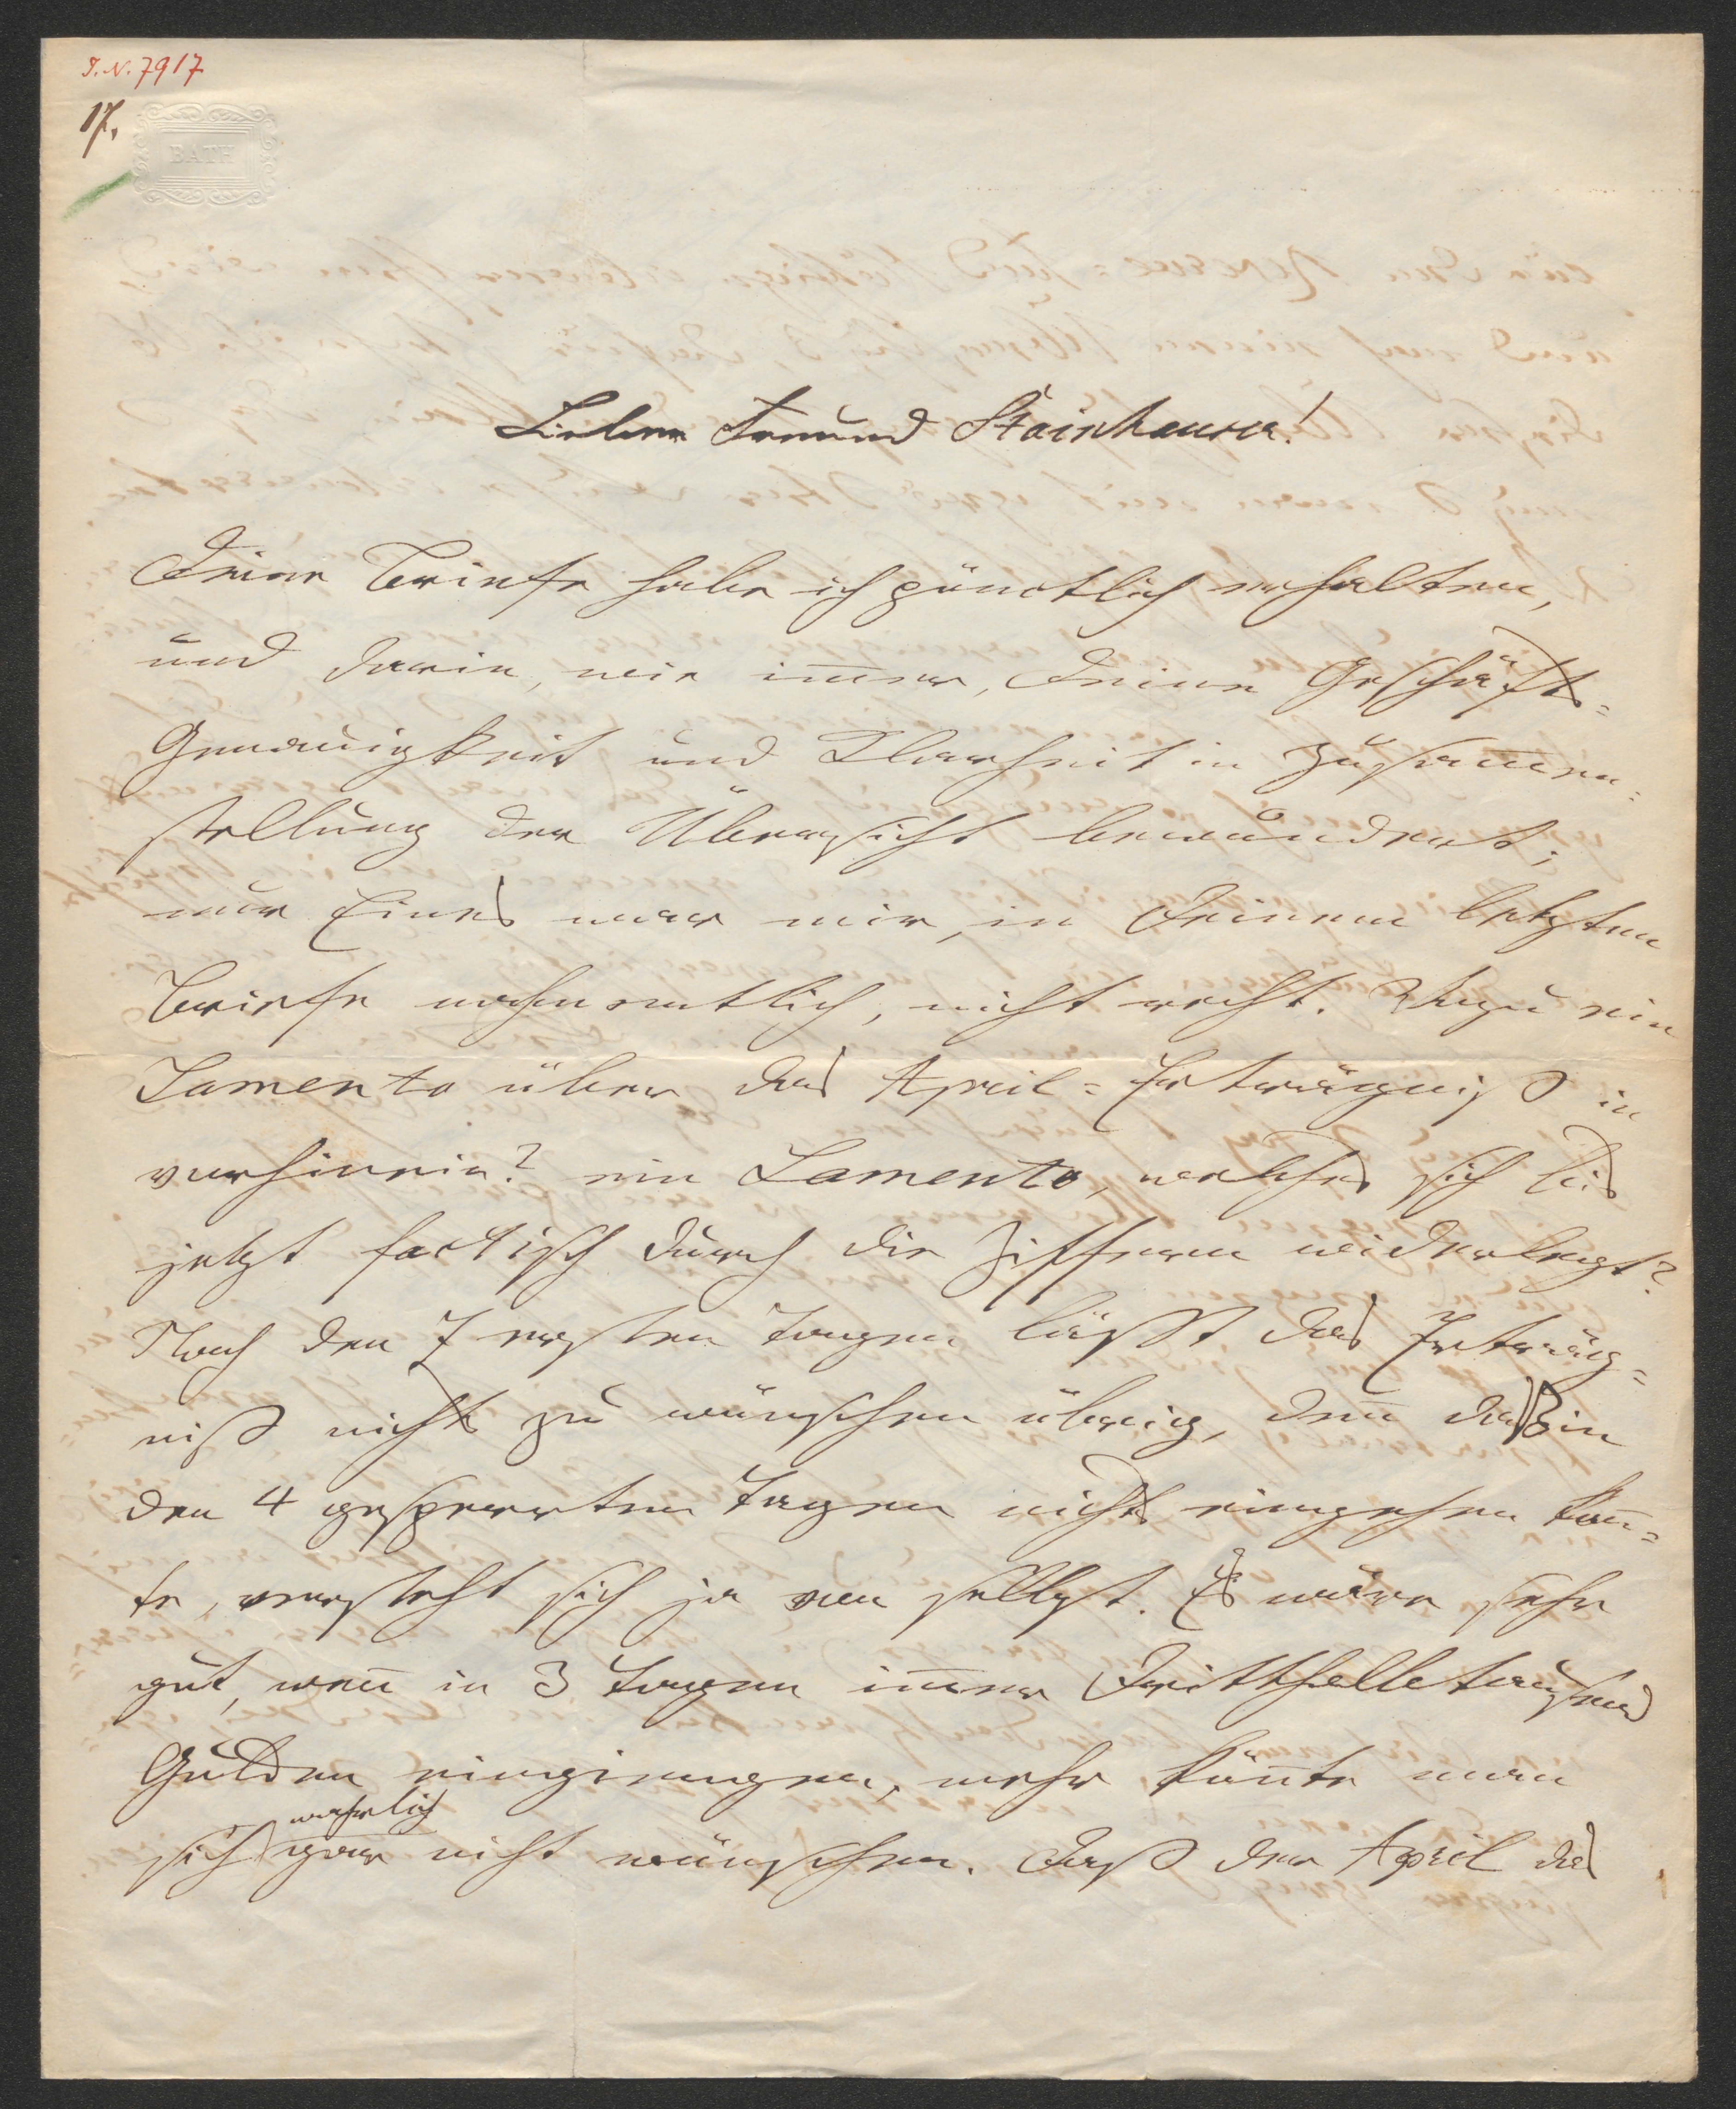 I.N. 7917
17.
BATH
Lieber Freund Stainhauser!
Deine Briefe habe ich pünctlich erhalten,
und darin, wie im̅er, Deine Geschäfts=
Genauigkeit und Klarheit in Zusam̅en=
stellung der Übersicht bewundert;
nur Eines war mir, in Deinem letzten
Briefe nahmentlich, nicht recht. Wozu ein
Lamento über das April=Erträgniß in
vorhinein? ein Lamento, welches sich bis
jetzt factisch durch die Ziffern widerlegt?
Nach den 7 ersten Tagen läßt das Erträg=
niß nichts zu wünschen übrig, den̅ daß in
den 4 gesperrten Tagen nichts eingehen kon̅=
te, versteht sich ja von selbst. Es wäre sehr
gut, wen̅ in 3 Tagen im̅er Dritthalbtausend
Gulden eingiengen, mehr kön̅te man
sich wahrlich gar nicht wünschen. Daß der April das